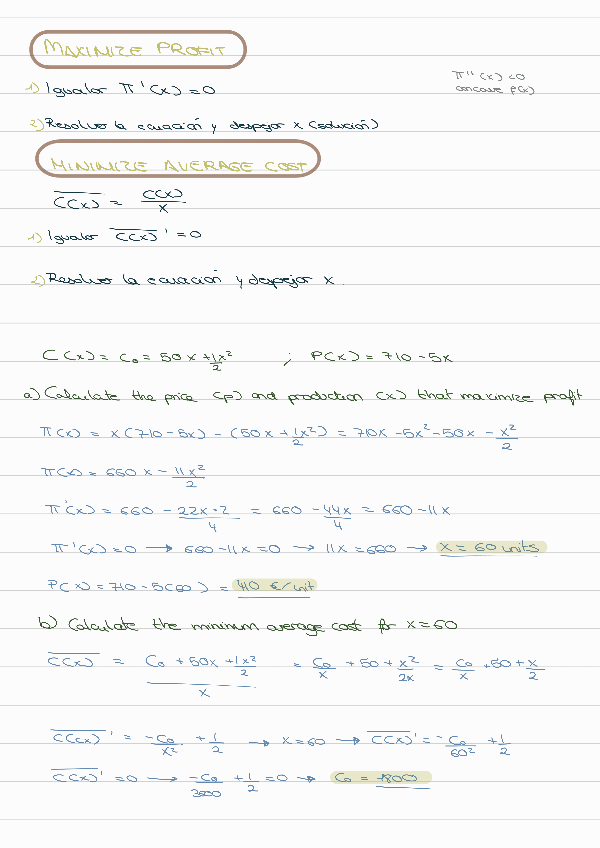 MAXIMIZE PROFIT
1) Igualar π'(x) = 0
π''(x) < 0
concave P(x)
2) Resolver la ecuación y despejar x (solución)
MINIMIZE AVERAGE COST
C̅(x) = C(x)/x
1) Igualar C̅(x)' = 0
2) Resolver la ecuación y despejar x.
C(x) = C₀ = 50x + 1x²/2 ; P(x) = 710 - 5x
a) Calculate the price (p) and production (x) that maximize profit
π(x) = x(710 - 5x) - (50x + 1x²/2) = 710x - 5x² - 50x - x²/2
π(x) = 660x - 11x²/2
π'(x) = 660 - 22x·2/4 = 660 - 44x/4 = 660 - 11x
π'(x) = 0 → 660 - 11x = 0 → 11x = 660 → x = 60 units
P(x) = 710 - 5(60) = 410 €/unit
b) Calculate the minimum average cost for x = 60
C̅(x) = C₀ + 50x + 1x²/2 / x = C₀/x + 50 + x²/2x = C₀/x + 50 + x/2
C̅(x)' = -C₀/x² + 1/2 → x = 60 → C̅(x)' = -C₀/60² + 1/2
C̅(x)' = 0 → -C₀/3600 + 1/2 = 0 → C₀ = 1800